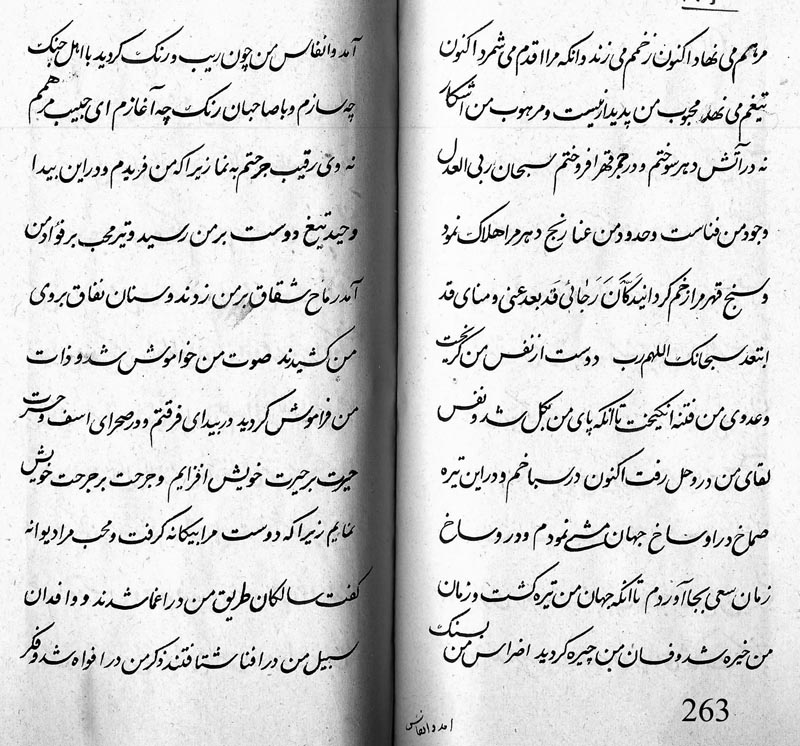 مرهم می نهاد اکنون زخمم می زند وانکه مرا اقدم می شمرد اکنون
تیغم می نهد محبوب من پدیدار نیست و مرهوب من آشکار
نه در آتش دهر سوختم و در جمر قهر افروختم سبحان ربی العدل
وجود من فناست وحدود من عنا رنج دهر مرا هلاک نمود
و سنج قهر مرا زخم گردانید کَاَنَ رَجائی قَد بعد عنی و منای قد
ابتعد سبحانک اللهم رب دوست از نفس من گریخت
و عدوی من فتنه انگیخت تا انکه پای من بگل شد و نفس
لقای من در وحل رفت اکنون در سباخم و در این تیره
صماخ در اوساخ جهان مشی نمودم و در وساخ
زمان سعی بجا آوردم تا انکه جهان من تیره گشت و زمان
من خیره شد و فسان من چیره گردید اضراس من بسنگ
آمد و انفاس من چون ریب و رنگ گردید با اهل جنگ
چه سازم و با صاحبان رنگ چه آغازم ای حبیب مرهمم
نه وی رقیب جرحتم به نما زیرا که من فریدم و در این بیدا
وحید تیغ دوست بر من رسید و تیر محب بر فؤاد من
آمد رماح شقاق بر من زدند و سنان نفاق بروی
من کشیدند صوت من خواموش شد و ذات
من فراموش گردید در بیدای فرقتم و در صحرای اسف و حسرت
حیرت بر حیرت خویش افزایم و جرحت بر جرحت خویش
نمایم زیرا که دوست مرا بیکانه گرفت و محب مرا دیوانه
گفت سالکان طریق من در اغما شدند و وافدان
سبیل من در افنا شتافتند ذکر من در افواه شد و فکر
امد و انفاس
263